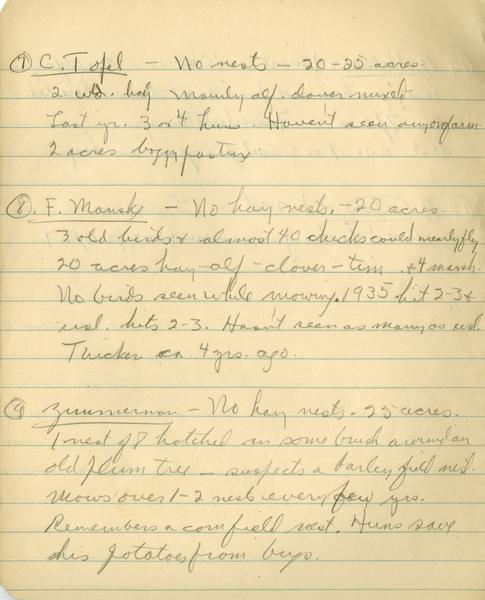 ⑦ C. Topel - No nests - 20-25 acres.
2 wd. hay mainly alf clover mixed
Last yr. 3 or 4 huns. Haven't seen any on farm
2 acres boggy pasture
⑧. F. Mansky - No hay nests. - 20 acres.
3 old birds & almost 40 chicks could nearly fly
20 acres hay - alf - clover - tim. + 4 marsh.
No birds seen while mowing. 1935 hit 2-3 &
usl. hits 2-3. Hasn't seen as many as usl.
Thicker 4 yrs. ago.
⑨ Zimmerman - No hay nests - 25 acres.
1 nest of 8 hatched in some brush around an
old plum tree - suspects a barley field nest.
Mows over 1-2 nests every few yrs.
Remembers a corn field nest. Huns save
his potatoes from bugs.